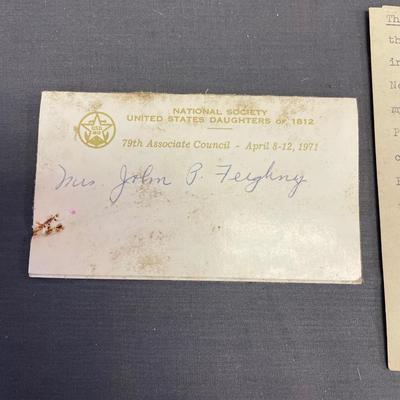 NATIONAL SOCIETY
UNITED STATES DAUGHTERS OF 1812
79th Associate Council - April 8-12, 1971
Mrs. John P. Feighny
th
in